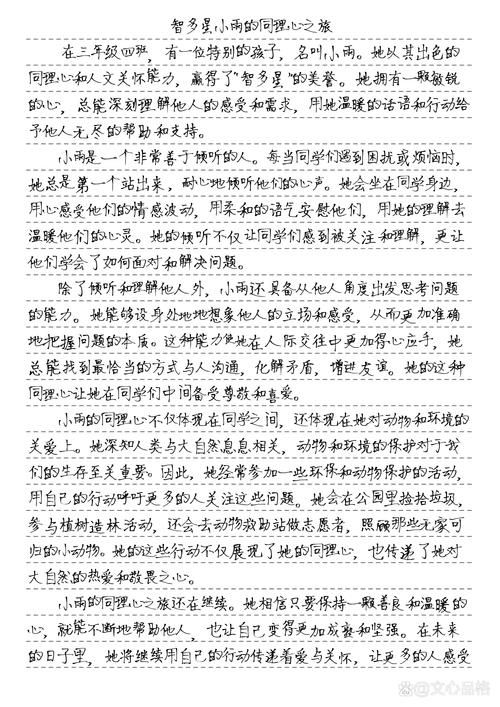 智多星小雨的同理心之旅
在三年级四班，有一位特别的孩子，名叫小雨。她以其出色的
同理心和人文关怀能力，赢得了"智多星"的美誉。她拥有一颗敏锐
的心，总能深刻理解他人的感受和需求，用她温暖的话语和行动给
予他人无尽的帮助和支持。
小雨是一个非常善于倾听的人。每当同学们遇到困扰或烦恼时，
她总是第一个站出来，耐心地倾听他们的心声。她会坐在同学身边，
用心感受他们的情感波动，用柔和的语气安慰他们，用她的理解去
温暖他们的心灵。她的倾听不仅让同学们感到被关注和理解，更让
他们学会了如何面对和解决问题。
除了倾听和理解他人外，小雨还具备从他人角度出发思考问题
的能力。她能够设身处地地想象他人的立场和感受，从而更加准确
地把握问题的本质。这种能力使她在人际交往中更加得心应手，她
总能找到最恰当的方式与人沟通，化解矛盾，增进友谊。她的这种
同理心让她在同学们中间备受尊敬和喜爱。
小雨的同理心不仅体现在同学之间，还体现在她对动物和环境的
关爱上。她深知人类与大自然息息相关，动物和环境的保护对于我
们的生存至关重要。因此，她经常参加一些环保和动物保护的活动，
用自己的行动呼吁更多的人关注这些问题。她会在公园里捡拾垃圾，
参与植树造林活动，还会去动物救助站做志愿者，照顾那些无家可
归的小动物。她的这些行动不仅展现了她的同理心，也传递了她对
大自然的热爱和敬畏之心。
小雨的同理心之旅还在继续。她相信只要保持一颗善良和温暖的
心，就能不断地帮助他人，也让自己变得更加成熟和坚强。在未来
的日子里，她将继续用自己的行动传递着爱与关怀，让更多的人感受
@文心品格